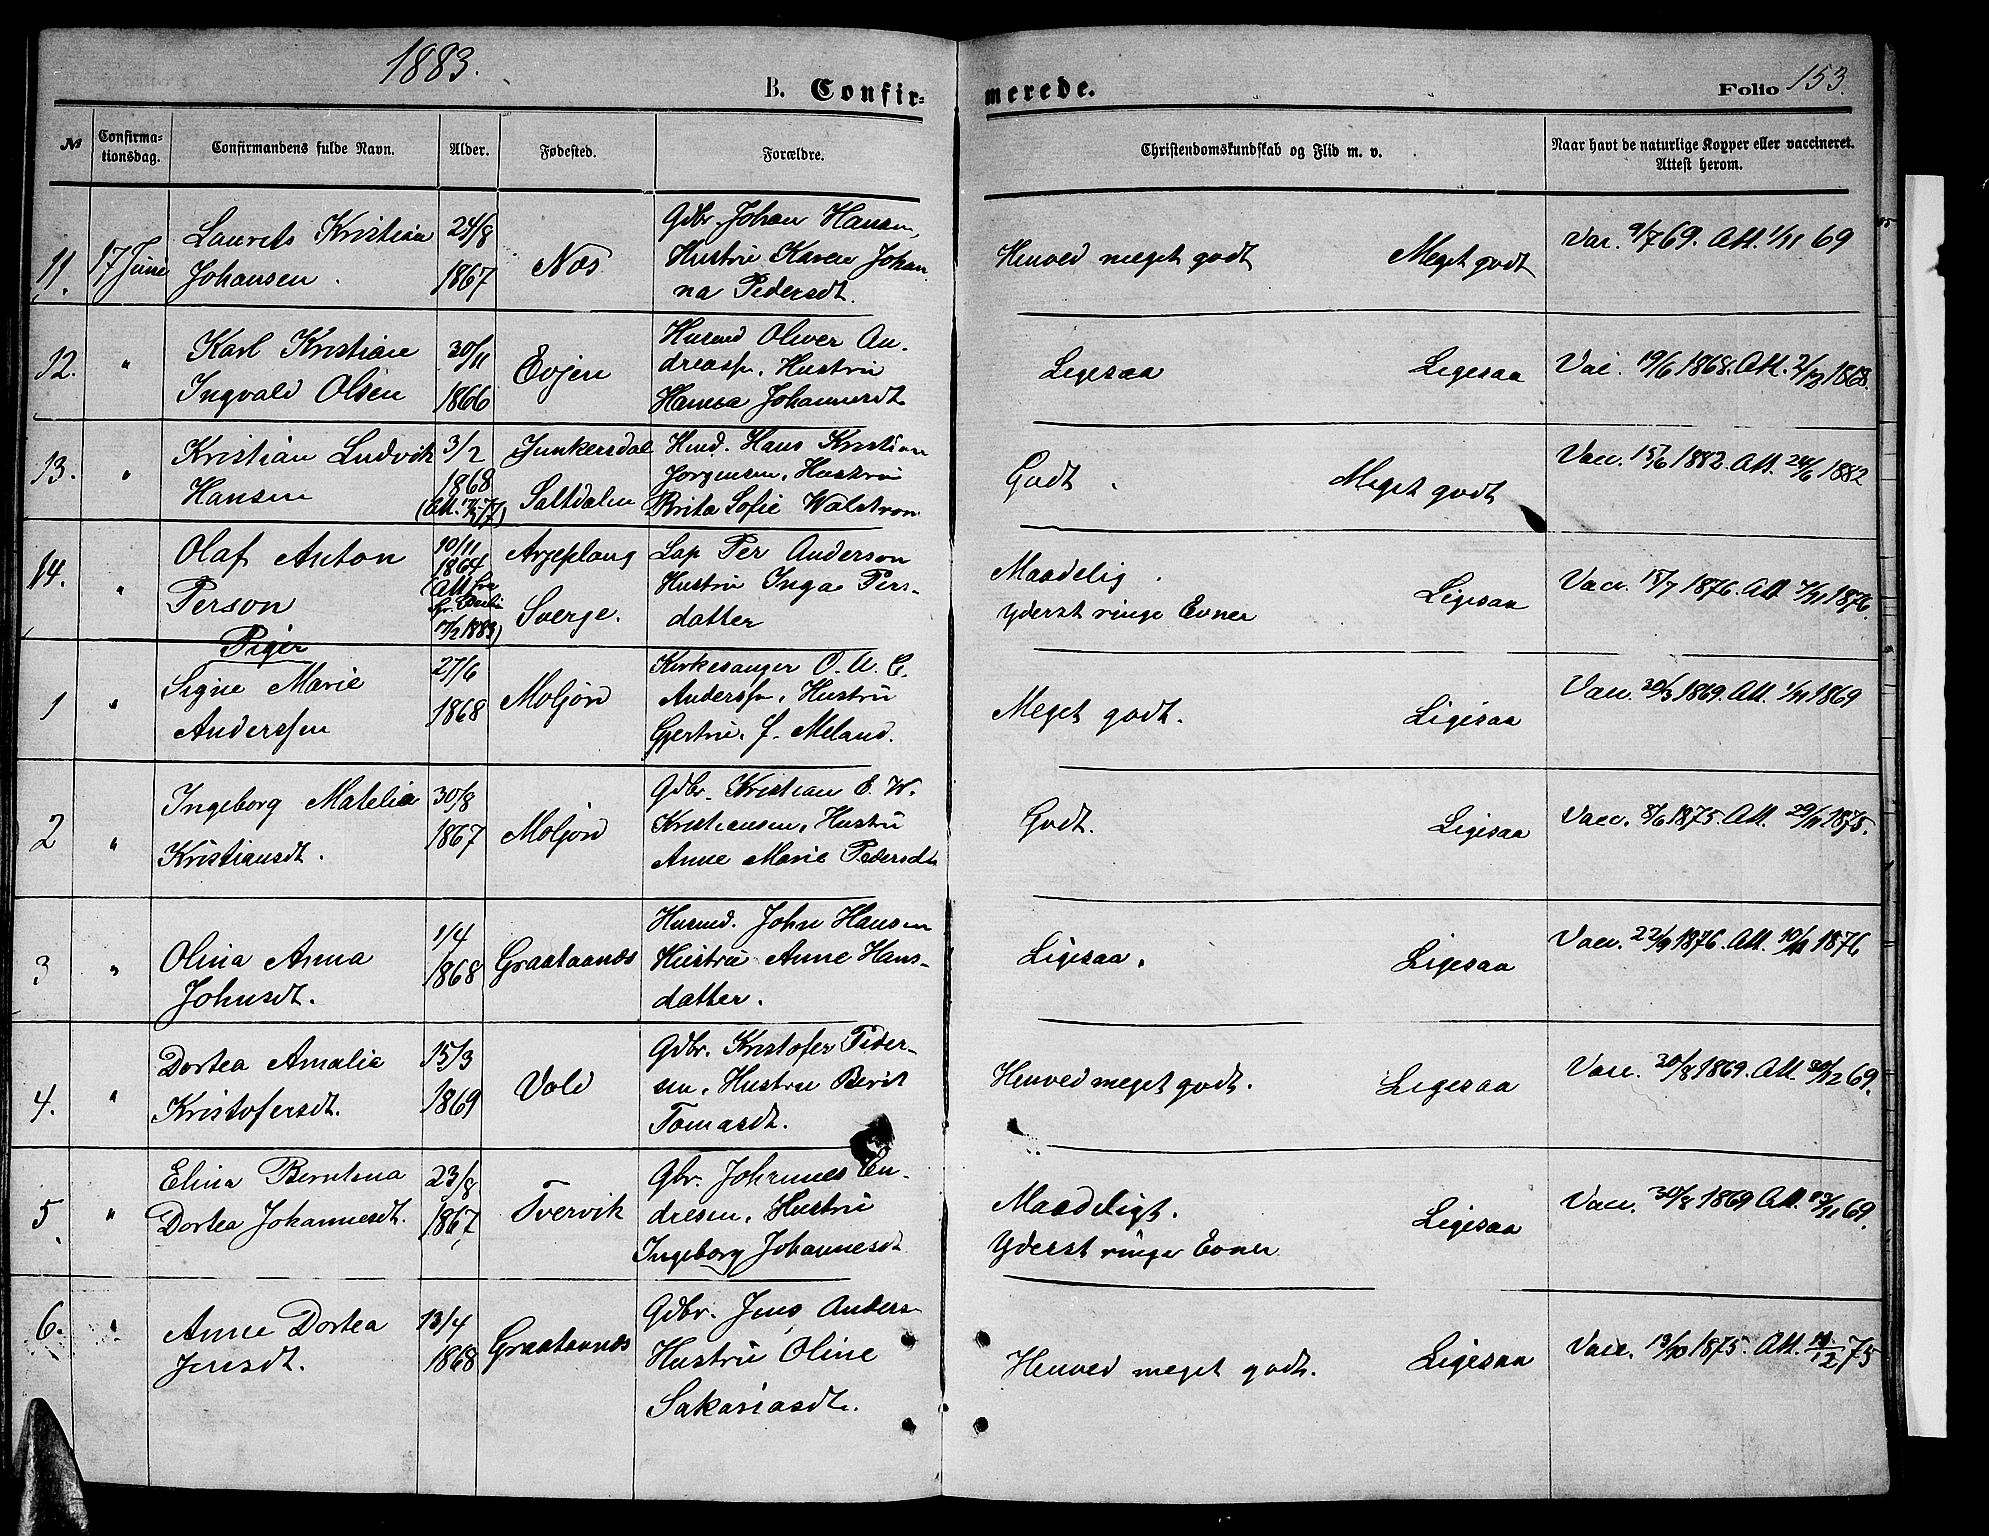 1883.
B. Confir-
merede.
Folio 153.
№
Confirma-
tionsdag.
Confirmandens fulde Navn.
Alder.
Fødested.
Forældre.
Christendomskundskab og Flid m. v.
Naar havt de naturlige Kopper eller vaccineret.
Attest herom.
11.
17 Juni
Laurits Kristian
Johansen.
24/8
1867
Næs
Gdbr. Johan Hansen,
Hustru Karen Johan
na Pedersdt.
Henved meget godt
Meget godt
Vac. 9/7 69. Att. 1/11 69
12.
"
Karl Kristian
Ingvald Olsen
30/11
1866
Evjen
Husmd Oliver An-
dreass., Hustru
Hansea Johannesdt.
Ligesaa
Ligesaa
Vac. 19/6 1868. Att. 2/12 1868.
13.
"
Kristian Ludvik
Hansen
3/2
1868
Junkersdal
Saltdalen
Hmd. Hans Kristian
Jørgensen, Hustru
Brita Sofie Walstrøm
Godt.
Meget godt
Vacc. 15/6 1882. Att. 24/6 1882
14.
"
Olaf Anton
Person
10/11
1864
(Att. fra
1883)
Arjeplaug
Sverge.
Lap Per Anderson
Hustru Inga Pers-
datter
Maadelig.
Yderst ringe Evner
Ligesaa
Vacc. 15/7 1876. Att. 7/11 1876
Piger
1
"
Signe Marie
Anderssen
27/6
1868
Moljord
Kirkesanger O. A. C.
Anderss., Hustru
Gjertru. f. Meland.
Meget godt.
Ligesaa
Vacc. 20/3 1869. Att. 1/11 1869
2
"
Ingeborg Matelia
Kristiansdt.
30/8
1867
Moljord
Gdbr. Kristian E. W.
Kristiansen, Hustru
Anne Marie Pedersdt
Godt.
Ligesaa
Vacc. 8/6 1875. Att. 29/11 1875.
3
"
Olina Anna
Johnsdt.
1/4
1868
Graataanes
Husmd. John Hansen
Hustru Anne Hans-
datter.
Ligesaa.
Ligesaa
Vacc. 22/9 1876. Att. 10/11 1876
4.
"
Dortea Amalie
Kristofersdt.
15/3
1869
Vold
Gdbr. Kristofer Peder-
sen, Hustru Berit
Tomasdt.
Henved meget godt.
Ligesaa
Vacc. 30/8 1869. Att. 30/12 69.
5
"
Elina Berntina
Dortea Johannesdt.
23/8
1867
Tvervik
Gbr. Johannes En-
dresen, Hustru
Ingeborg Johannesdt
Maadeligt.
Yderst ringe Evner
Ligesaa
Vacc. 30/8 1869 Att. 13/11 69.
6.
"
Anne Dortea
Jensdt.
13/4
1868
Graataanes
Gdbr. Jens Anders.
Hustru Oline
Sakariasdt.
Henved meget godt.
Ligesaa
Vacc. 19/10 1875. Att. 11/12 75